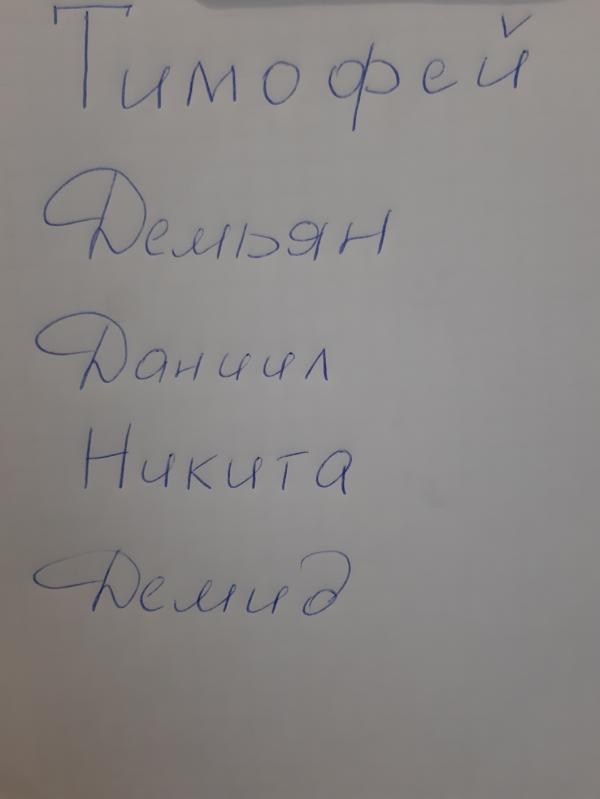 Тимофей
Демьян
Даниил
Никита
Демид